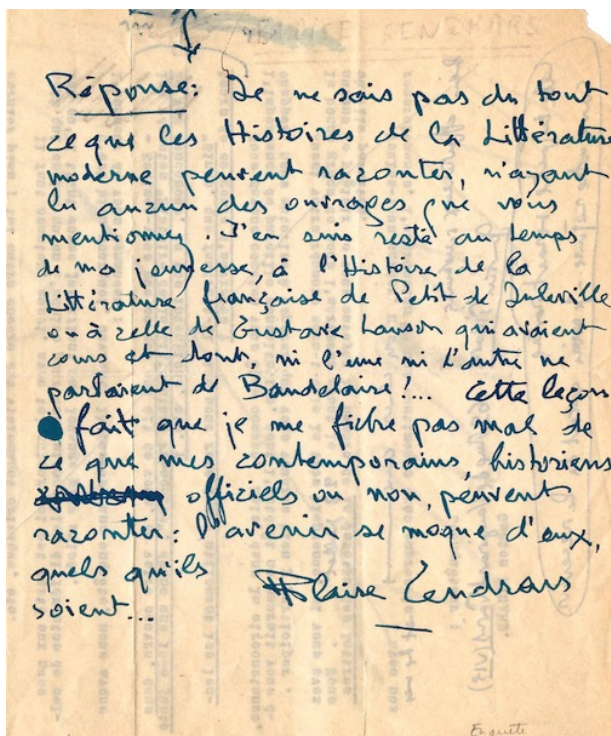 Réponse: Je ne sais pas du tout
ce que les Histoires de la Littérature
moderne peuvent raconter, n'ayant
lu aucun des ouvrages que vous
mentionnez. J'en suis resté au temps
de ma jeunesse, à l'Histoire de la
Littérature française de Petit de Juleville
ou à celle de Gustave Lanson qui avaient
cours et dont, ni l'une ni l'autre ne
parlaient de Baudelaire!... Cette leçon
fait que je me fiche pas mal de
ce que mes contemporains, historiens
officiels ou non, peuvent
raconter: l'avenir se moque d'eux,
quels qu'ils
soient...
Blaise Cendrars
Enquête